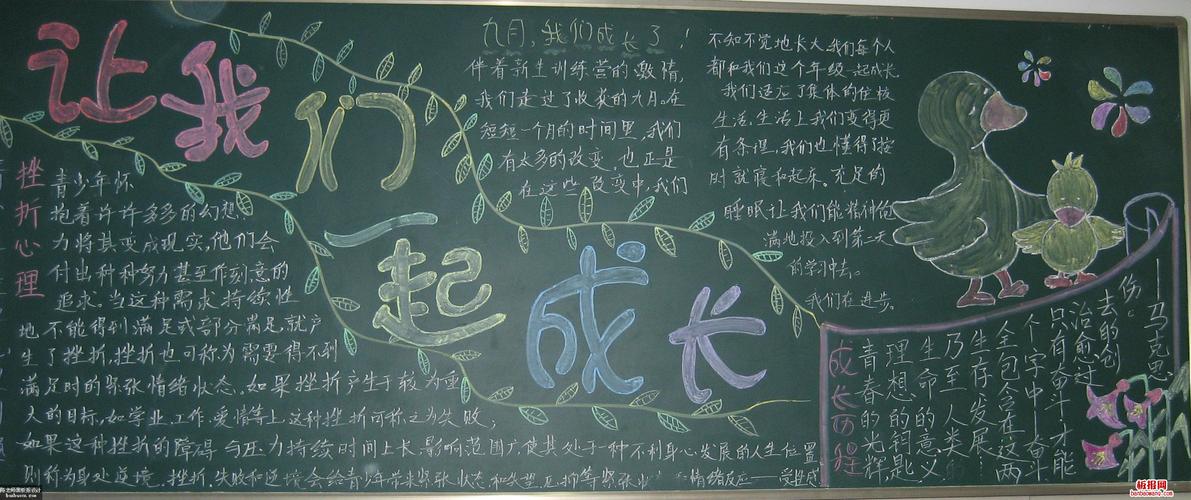 让我们
一起成长
挫折心理
青少年怀
抱着许许多多的幻想,
力将其变成现实,他们会
付出种种努力甚至作刻意的
追求.当这种需求持续性
地不能得到满足或部分满足,就产
生了挫折,挫折也可称为需要得不到
满足时的紧张情绪状态,如果挫折产生于较为重
大的目标,如学业.工作.爱情等上这种挫折可称之为失败;
如果这种挫折的障碍与压力持续时间上长.影响范围广使其处于一种不利身心发展的人生位置
则称为身处逆境.挫折.失败和逆境会给青少年带来紧张状态和失望.压抑等紧张
情绪反应——
九月,我们成长了!
伴着新生训练营的激情,
我们走过了收获的九月.在
短短一个月的时间里,我们
有太多的改变,也正是
在这些改变中,我们
不知不觉地长大.我们每个人
都和我们这个年级一起成长
我们适应了集体的住校
生活,生活上我们变得更
有条理,我们也懂得了按
时就寝和起床.充足的
睡眠让我们能精神饱
满地投入到第二天
的学习中去。
我们在进步。
成长历程
青春的光辉
理想的钥匙
生命的意义
乃至人类
生存、发展
全包含在这两
个字中——奋斗
只有奋斗才能
治愈过
去的创
伤。
——马克思
板报网
banbaowang.com